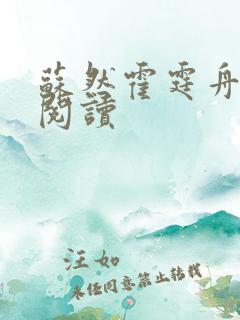 蘇然霍霆舟
閱讀
汪如
未经同意禁止转载